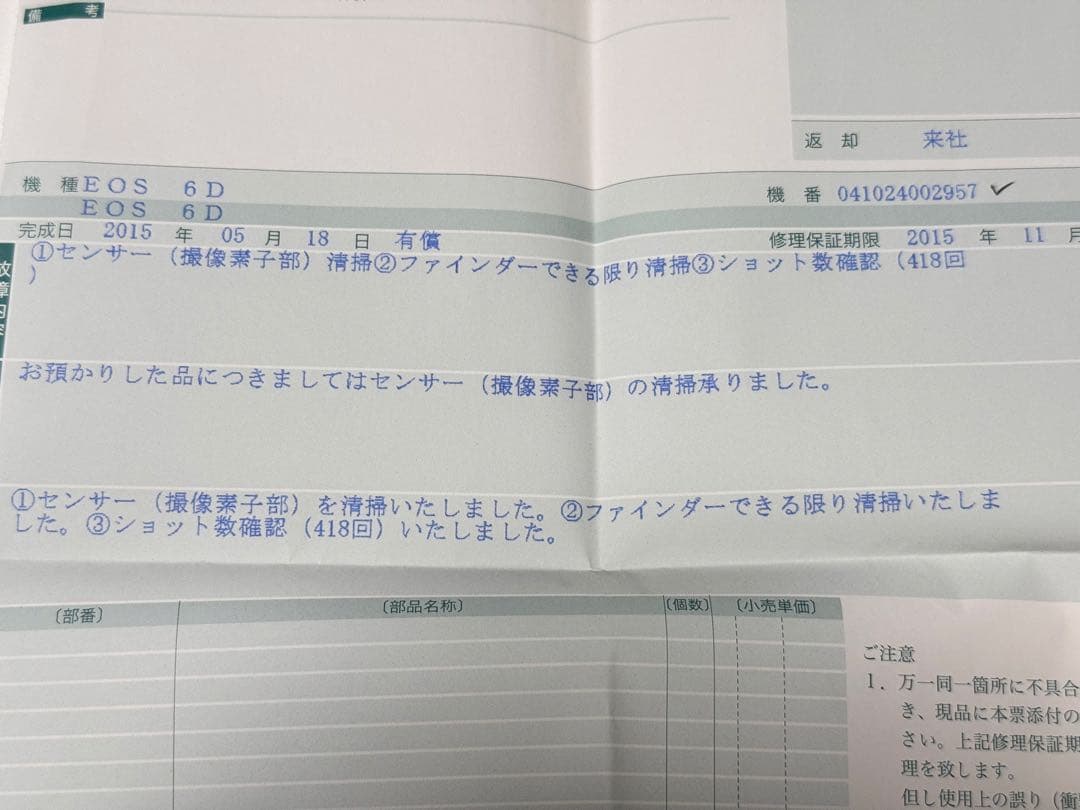 備 考
返 却 来社
機 種 EOS 6D
EOS 6D
機 番 041024002957
完成日 2015 年 05 月 18 日 有償
修理保証期限 2015 年 11 月
①センサー（撮像素子部）清掃②ファインダーできる限り清掃③ショット数確認（418回
）
お預かりした品につきましてはセンサー（撮像素子部）の清掃承りました。
①センサー（撮像素子部）を清掃いたしました。②ファインダーできる限り清掃いたしま
した。③ショット数確認（418回）いたしました。
〔部番〕 〔部品名称〕 〔個数〕 〔小売単価〕
ご注意
1．万一同一箇所に不具合
き、現品に本票添付の
さい。上記修理保証期
理を致します。
但し使用上の誤り（衝